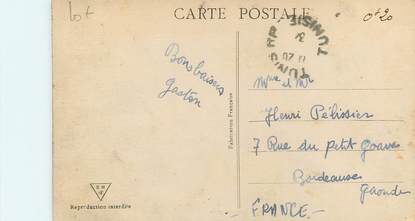 lot
CARTE POSTALE
0+20
TUNISIE
Bons baisers
Gaston
Mme et Mr
Henri Pélissier
7 Rue du petit Goave
Bordeaux
Gironde
FRANCE
Fabrication Française
Reproduction interdite